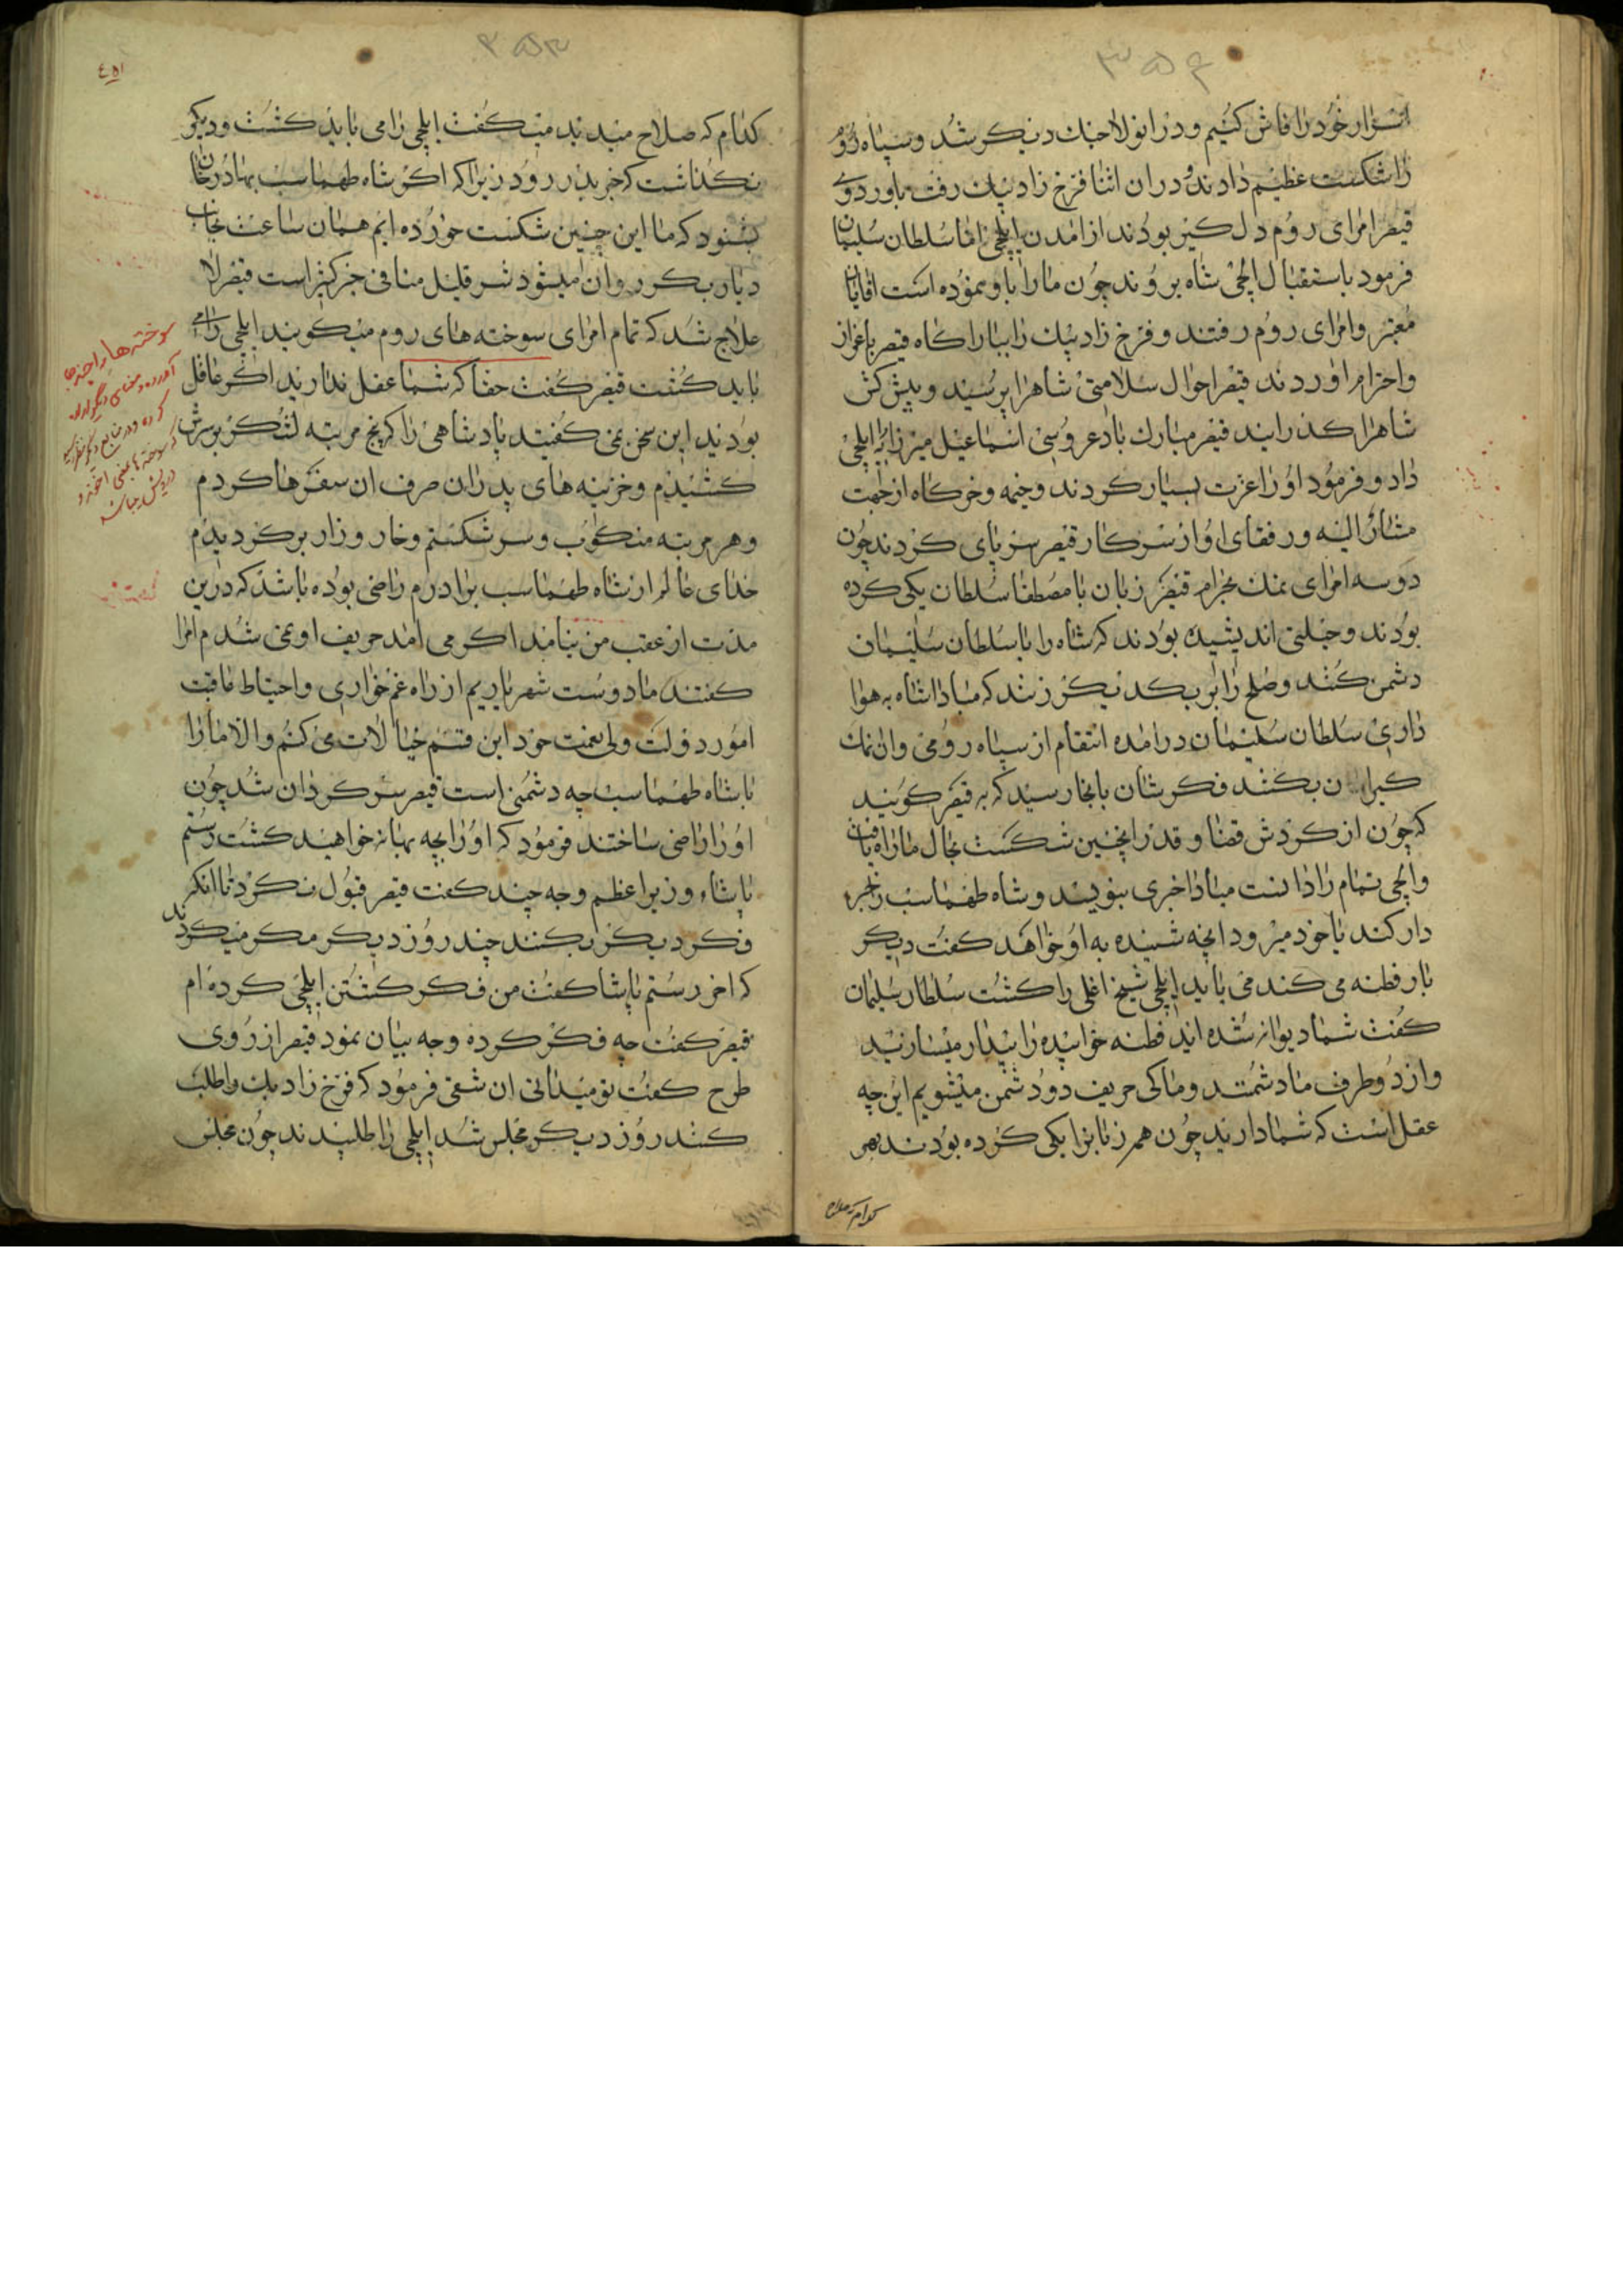 ۳۵۴
اسرار خود را فاش کنیم و در انولا جنك دیکر شد و سپاه روم
را شکست عظیم دادند و دران اثنا فرخ زاد بیك رفت باوردوی
قیصر امرای روم دل کیر بودند از امدن ایلچی اما سلطان سلیمان
فرمود باستقبال ایلچی شاه بروند چون ما را باو نموده است اقایان
معتبر و امرای روم رفتند و فرخ زاد بیك را ببارکاه قیصر باعزاز
و احترام اوردند قیصر احوال سلامتی شاه را پرسید و پیش کش
شاه را کذرانید قیصر مبارك باد عروسی اسماعیل میرزا به ایلچی
داد و فرمود او را عزت بسیار کردند و خیمه و خرکاه از جهت
مشارالیه و رفقای او از سرکار قیصر سرپای کردند چون
دو سه امرای نمك بحرام قیصر زبان با مصطفا سلطان یکی کرده
بودند و حیلتی اندیشیده بودند که شاه را با سلطان سلیمان
دشمن کنند و صلح را بر یکدیکر زنند که مبادا شاه به هوا
داری سلطان سلیمان درامده انتقام از سپاه رومی و ان نمك
کیران بکشد فکرشان بانجا رسید که به قیصر کویند
که چون از کردش قضا و قدر اینچنین شکست بحال ما راه یافت
و ایلچی تمام را دانست مبادا خبری بنویسد و شاه طهماسب را خبر
دار کند یا خود میرود انچه شنیده به او خواهد کفت دیکر
بار فطنه می کند می باید ایلچی شیخ اغلی را کشت سلطان سلیمان
کفت شما دیوانه شده اید فطنه خوابیده را بیدار میسازید
و از دو طرف ما دشمنند و ما کی حریف دو دشمن میشویم این چه
عقل است که شما دارید چون همه زبانرا یکی کرده بودند بهر
کدام که صلاح
۳۵۳
٤٥١
کدام که صلاح میدیدید میکفت ایلچی را می باید کشت و دیکر
نکذاشت که خبر بدر رود زیرا که اکر شاه طهماسب بهادرخان
بشنود که ما این چنین شکست خورده ایم همان ساعت بجانب
دیار بکر روان میشود شر قلیل منافی خیر کثیر است قیصر لا
علاج شد که تمام امرای سوخته های روم میکویند ایلچی را می
باید کشت قیصر کفت حقا که شما عقل ندارید اکر عاقل
بودید این سخن نمی کفتید پادشاهی را که پنج مرتبه لشکر بر سرش
کشیدم و خزینه های پدران صرف ان سفرها کردم
و هر مرتبه منکوب و سر شکستم و خار و زار برکردیدم
خدای عالم از شاه طهماسب برادرم راضی بوده باشد که درین
مدت از عقب من نیامد اکر می امد حریف او نمی شدم امرا
کفتند ما دوست شهریاریم از راه غمخواری و احتیاط عاقبت
امور دولت ولی نعمت خود این قسم خیالات می کنیم و الا ما را
با شاه طهماسب چه دشمنی است قیصر سرکردان شد چون
او را راضی ساختند فرمود که او را بچه بهانه خواهید کشت رستم
پاشاء وزیر اعظم وجه چند کفت قیصر قبول نکرد تا انکه
فکر دیکر بکنند چند روز دیکر مکر میکردند
که اخر رستم پاشا کفت من فکر کشتن ایلچی کرده ام
قیصر کفت چه فکر کرده وجه بیان نمود قیصر از روی
طرح کفت تو میدانی ان شقی فرمود که فرخ زاد بیك را طلب
کنند روز دیکر مجلس شد ایلچی را طلبیدند چون مجلس
سوخته ها را